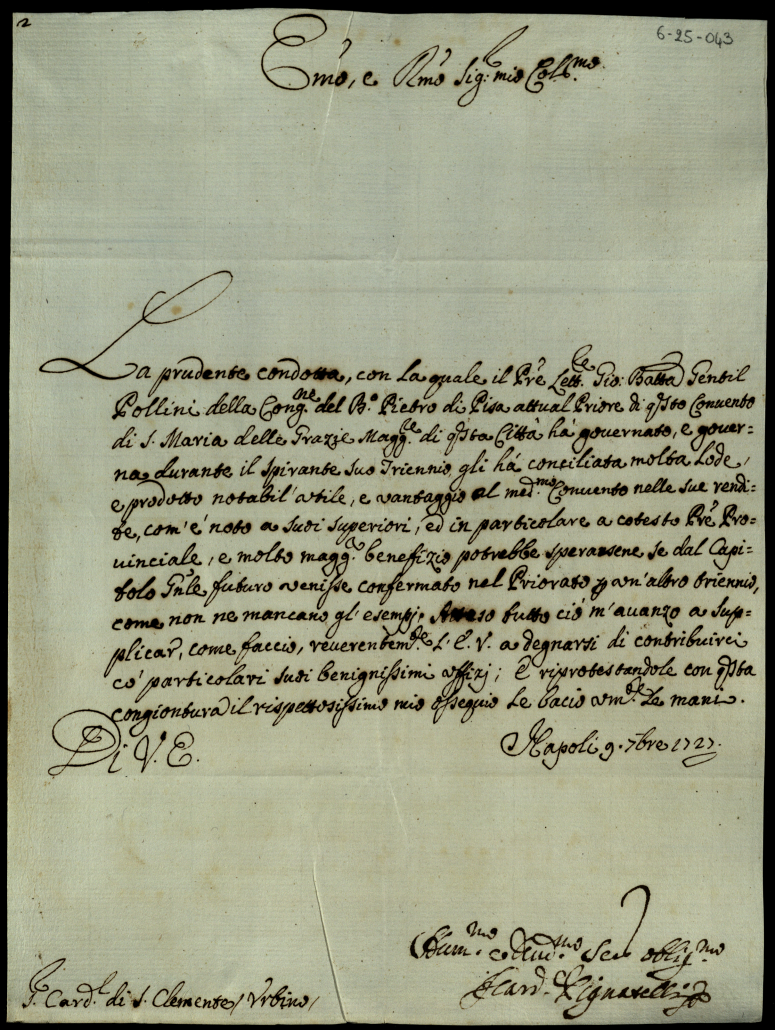 2
6-25-043
Em̃o, e Rm̃o Sig: mio Coll.mo
La prudente condotta, con la quale il Prẽ Lett.le Gio: Batta Gentil
Pollini della Cong.ne del B.o Pietro di Pisa attual Priore di q̃sto Convento
di S. Maria delle Grazie Magg.re di q̃sta Città há governato, e gover=
na durante il spirante suo Triennio gli há conciliata molta Lode,
e prodotto notabil' utile, e vantaggio al med.mo Convento nelle sue rendi=
te, com' é noto a suoi superiori, ed in particolare a cotesto Prẽ Pro=
vinciale, e molto magg.r benefizio potrebbe sperarsene se dal Capi=
tolo Gñle futuro venisse confermato nel Priorato ꝑ un' altro triennio,
come non ne mancano gl' esempj. Atteso tutto ció m' avanzo a sup=
plicar, come faccio, reverentem.te l' E. V. a degnarsi di contribuirci
co' particolari suoi benignissimi uffizj; E riprotestandole con q̃sta
congiontura il rispettosissimo mio ossequio le bacio um.te le mani.
Di V. E.
Napoli 9. 7bre 1727.
Hum.mo e Dev.mo Ser. oblig.mo
F. Card. Pignatelli
S. Card.l di S. Clemente / Urbino /